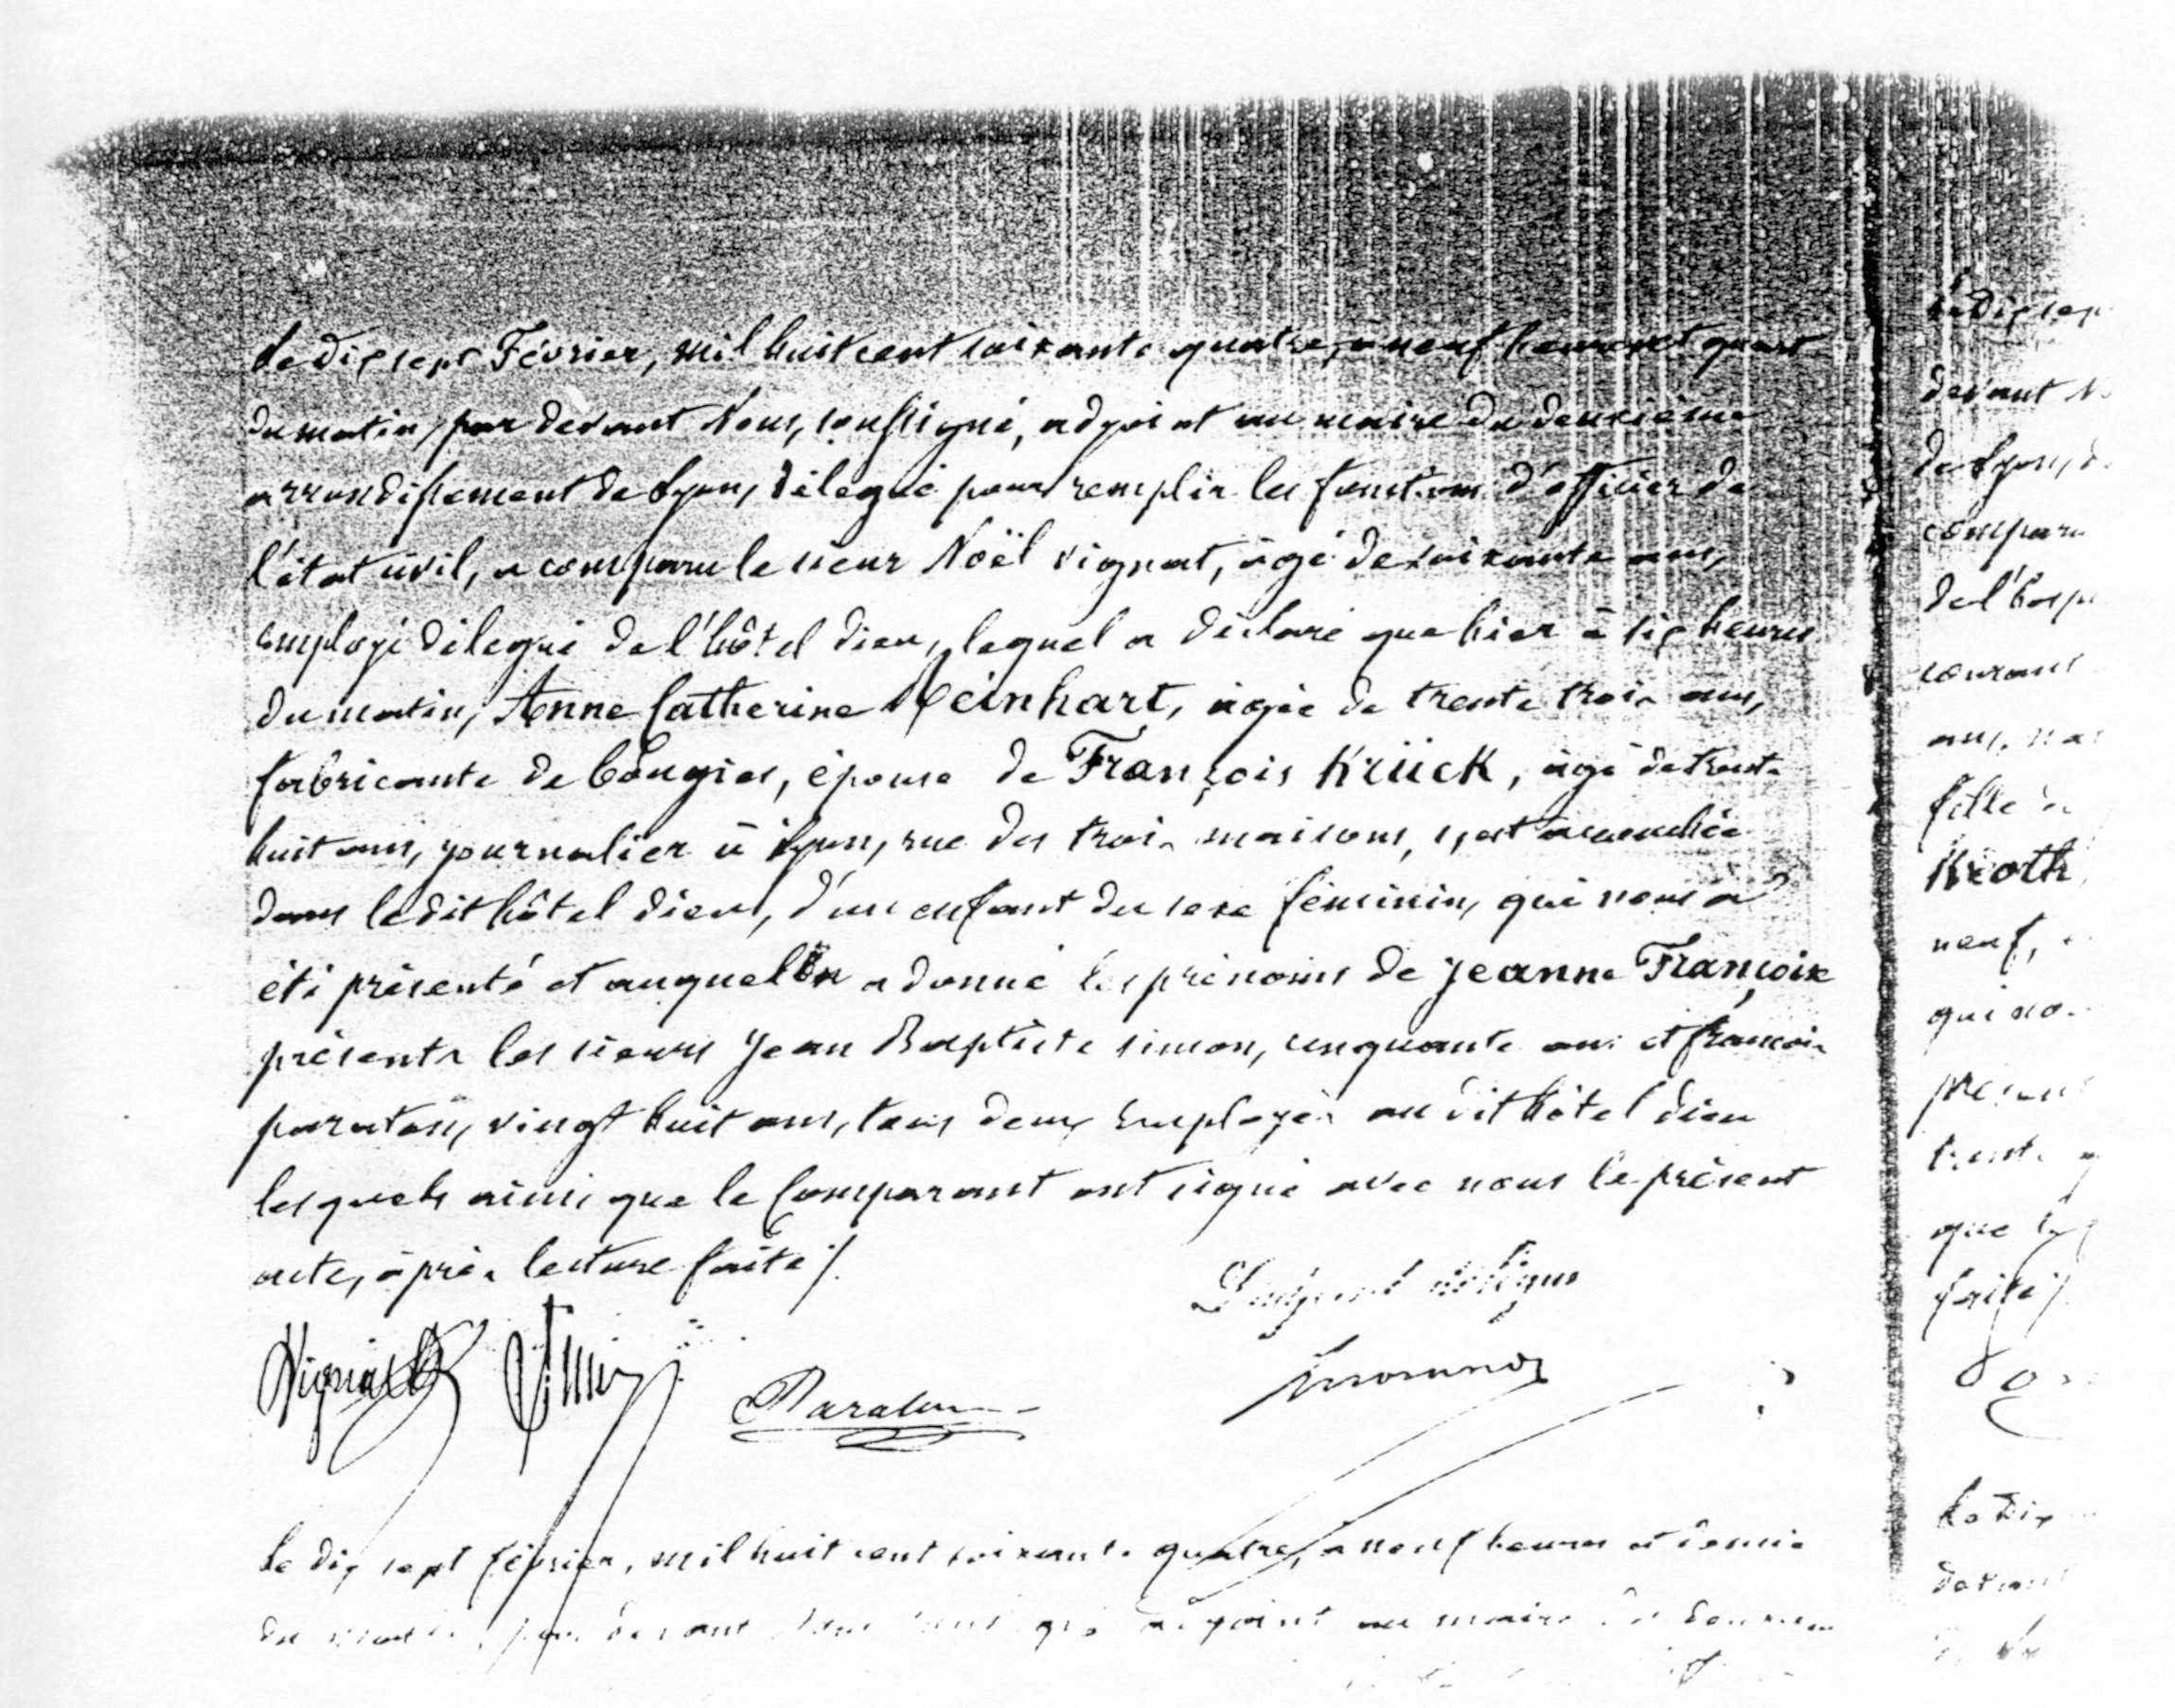 Le dix sept Février, mil huit cent soixante quatre, à neuf heures et quart
du matin, par devant Nous, soussigné, adjoint au maire du deuxième
arrondissement de Lyon, délégué pour remplir les fonctions d'officier de
l'état civil, a comparu le sieur Noël vignat, âgé de soixante ans,
employé délégué de l'hôtel dieu, lequel a déclaré que hier à six heures
du matin, Anne Catherine Meinhart, âgée de trente trois ans,
fabricante de bougies, épouse de François Krück, âgé de trente
huit ans, journalier à Lyon, rue des trois maisons, s'est accouchée
dans ledit hôtel dieu, d'un enfant du sexe féminin, qui nous a
été présenté et auquel on a donné les prénoms de Jeanne Françoise
présents les sieurs Jean Baptiste simon, cinquante ans et françois
paraton, vingt huit ans, tous deux Employés au dit hôtel dieu
lesquels ainsi que le Comparant ont signé avec nous le présent
acte, après lecture faite /.
Vignat
Paraton
Le dix sept février, mil huit cent soixante quatre, à neuf heures et demie
du matin, par devant adjoint au maire
Le dix sep
devant N
de Lyon, d
compar
de l'hosp
courant
ans,
fille
Kroth
neuf,
qui no
présen
trent
que
faite /.
Le dix
devant